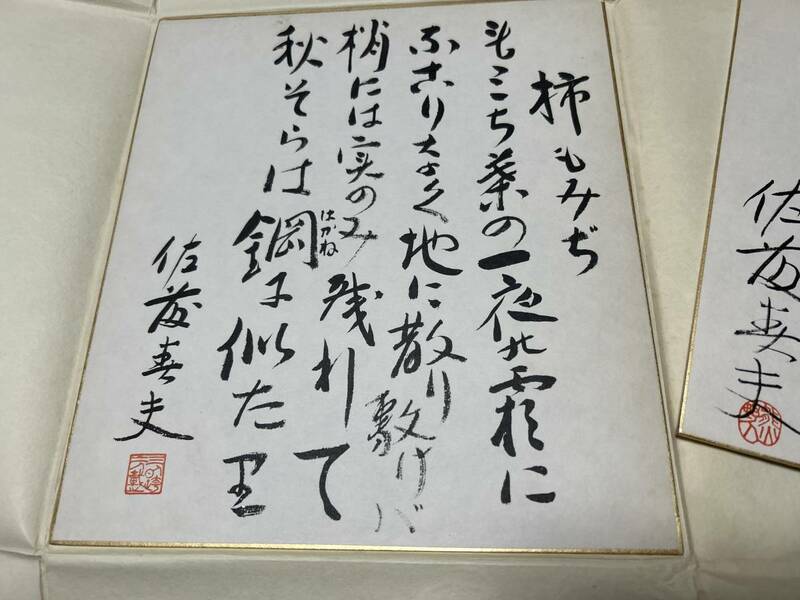 柿もみぢ
もミち葉の一夜の霜に
なこりなく地に散り敷けバ
梢には実のみ残りて
秋そらは鋼に似たり
はがね
佐藤春夫
佐藤春夫